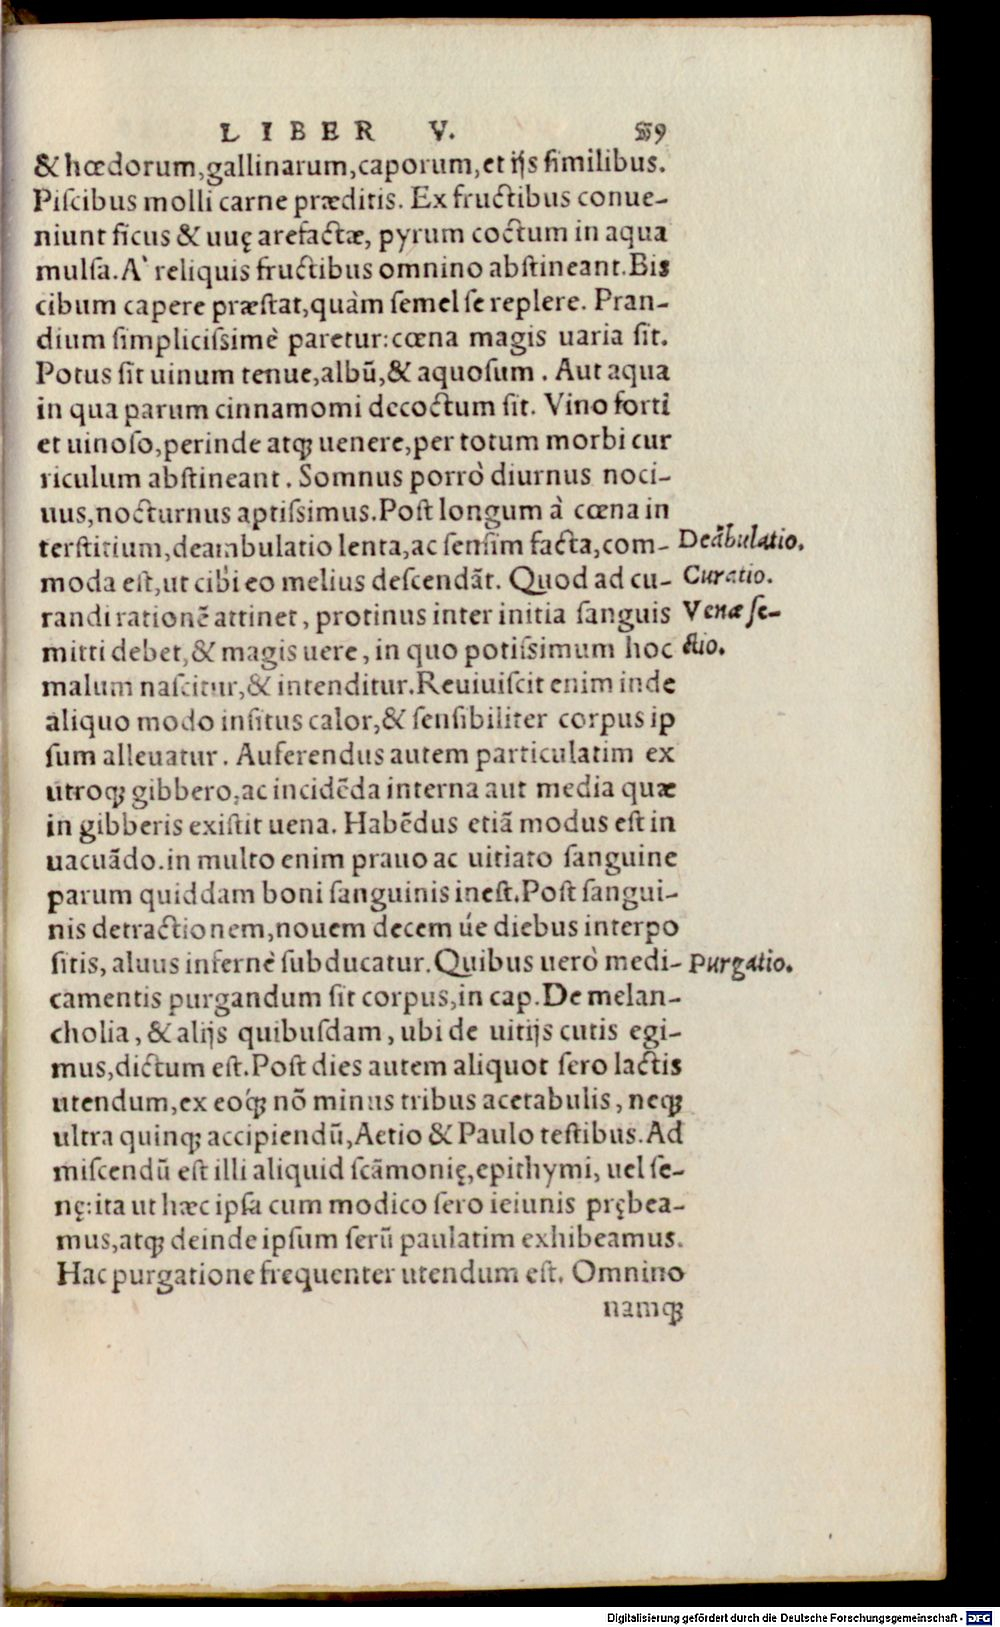 LIBER V. 59
& hœdorum,gallinarum,caporum,et ijs similibus.
Piscibus molli carne præditis. Ex fructibus conue-
niunt ficus & uuę arefactæ, pyrum coctum in aqua
mulsa. A` reliquis fructibus omnino abstineant. Bis
cibum capere præstat, quàm semel se replere. Pran-
dium simplicissimè paretur: cœna magis uaria sit.
Potus sit uinum tenue, albũ, & aquosum. Aut aqua
in qua parum cinnamomi decoctum sit. Vino forti
et uinoso, perinde atq; uenere, per totum morbi cur
riculum abstineant. Somnus porrò diurnus noci-
uus, nocturnus aptissimus. Post longum à cœna in
terstitium, deambulatio lenta, ac sensim facta, com- Deãbulatio.
moda est, ut cibi eo melius descendãt. Quod ad cu- Curatio.
randi rationẽ attinet, protinus inter initia sanguis Venæ se-
mitti debet, & magis uere, in quo potissimum hoc ctio.
malum nascitur, & intenditur. Reuiuiscit enim inde
aliquo modo insitus calor, & sensibiliter corpus ip
sum alleuatur. Auferendus autem particulatim ex
utroq; gibbero, ac incidẽda interna aut media quæ
in gibberis existit uena. Habẽdus etiã modus est in
uacuãdo. in multo enim prauo ac uitiato sanguine
parum quiddam boni sanguinis inest. Post sangui-
nis detractionem, nouem decem úe diebus interpo
sitis, aluus infernè subducatur. Quibus uerò medi- Purgatio.
camentis purgandum sit corpus, in cap. De melan-
cholia, & alijs quibusdam, ubi de uitijs cutis egi-
mus, dictum est. Post dies autem aliquot sero lactis
utendum, ex eoq́; nõ minus tribus acetabulis, neq;
ultra quinq; accipiendũ, Aetio & Paulo testibus. Ad
miscendũ est illi aliquid scãmonię, epithymi, uel se-
nę: ita ut hæc ipsa cum modico sero ieiunis prębea-
mus, atq; deinde ipsum serũ paulatim exhibeamus.
Hac purgatione frequenter utendum est. Omnino
namq;
Digitalisierung gefördert durch die Deutsche Forschungsgemeinschaft - DFG